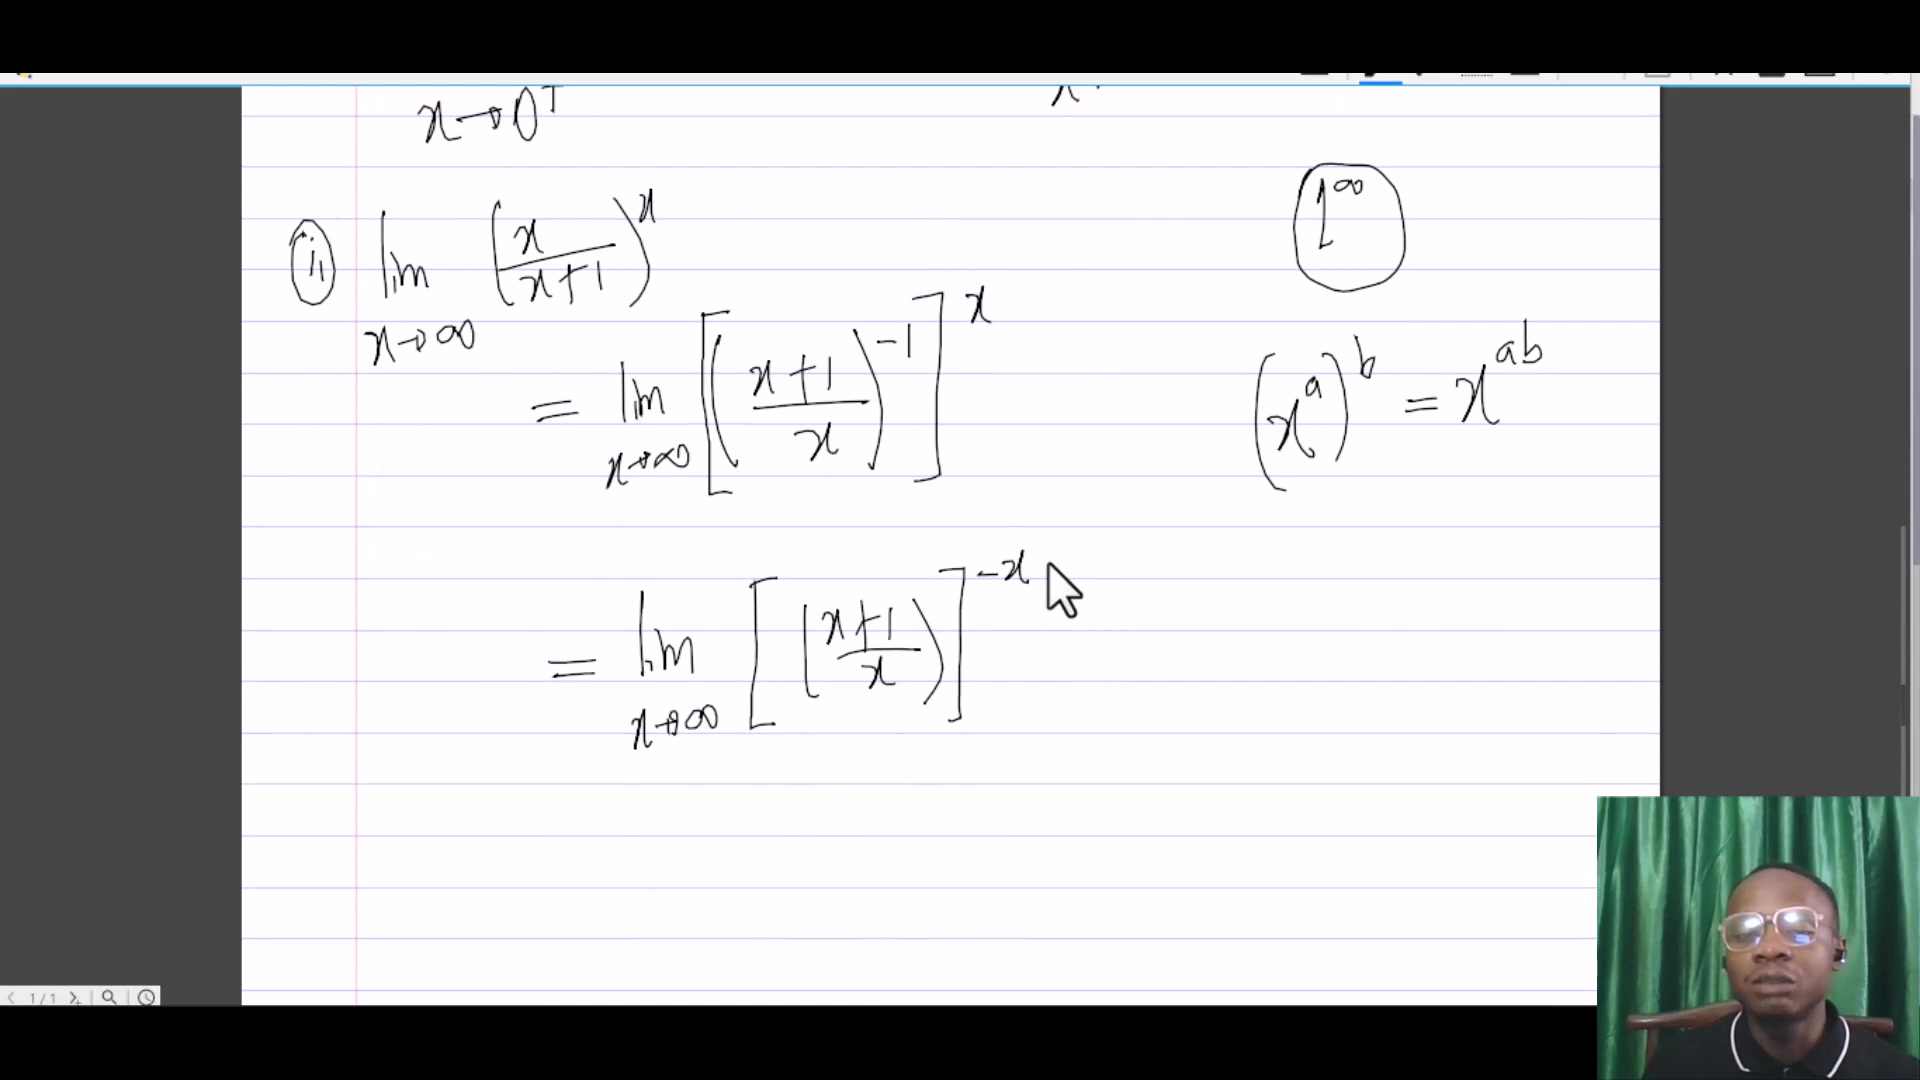 x→0⁺
ii lim x→∞ (x/(x+1))^x
1^∞
= lim x→∞ [((x+1)/x)^-1]^x
(x^a)^b = x^ab
= lim x→∞ [((x+1)/x)]^-x
1/1